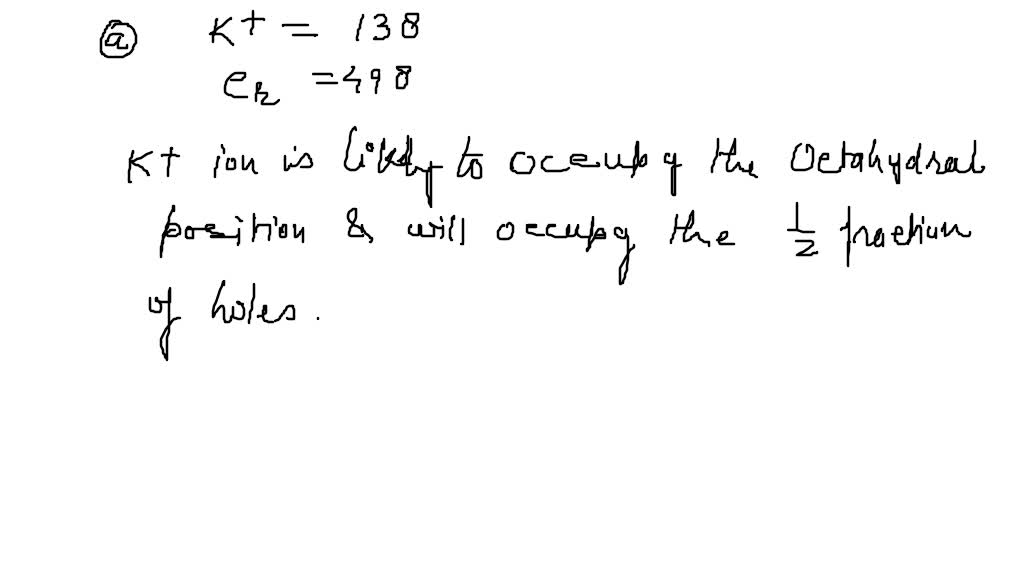 ⓐ K+ = 138
CR = 498
K+ ion is likely to occupy the Octahydral
position & will occupy the 1/2 fraction
of holes.